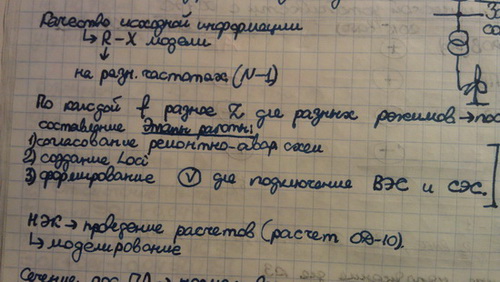 Качество исходной информации
↳ R-X модели
↓
на разн. частотах (N-1)
По каждой f разное Z для разных режимов → пос
составление Этапы работы:
1) согласование ремонтно-авар схем
2) создание Loci
3) формирование V для подключение ВЭС и СЭС.
НЭК → проведение расчетов (расчет
↳ моделирование